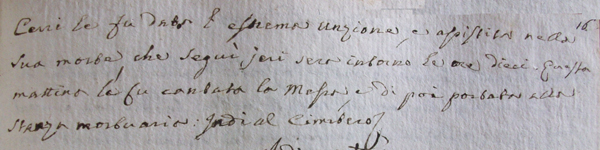 Cerri le fu data l'estrema unzione e assistita nella
sua morte che seguì jeri sera intorno le ore dieci. Questa
mattina le fu cantata la Messa e di poi portata alla
stanza mortuaria: Indi al Cimitero